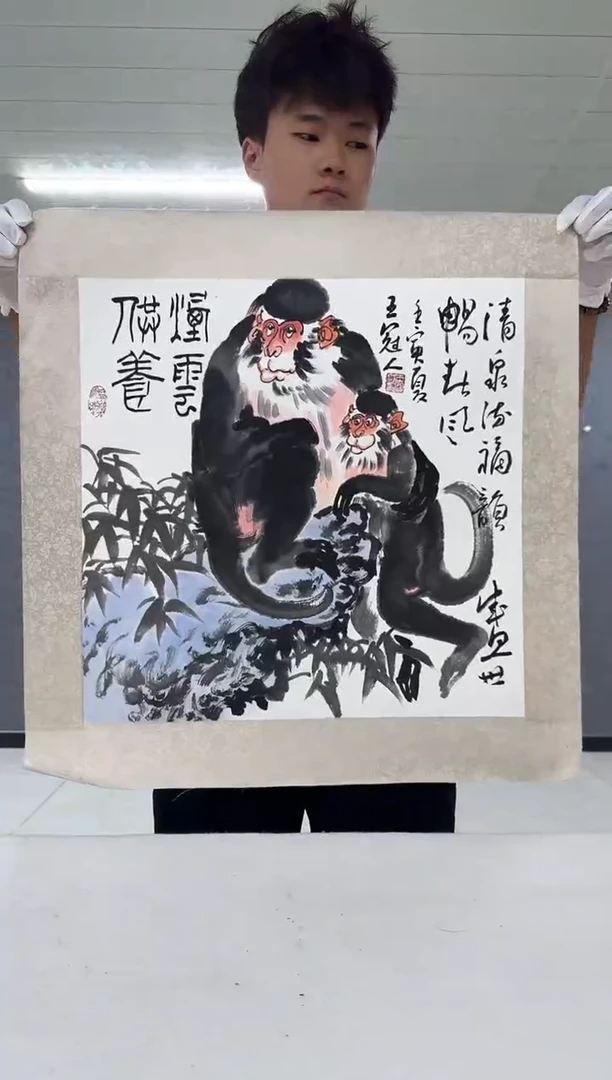 清泉流福韻
盛世
暢春風
壬寅夏
王冠人
煙雲
供養